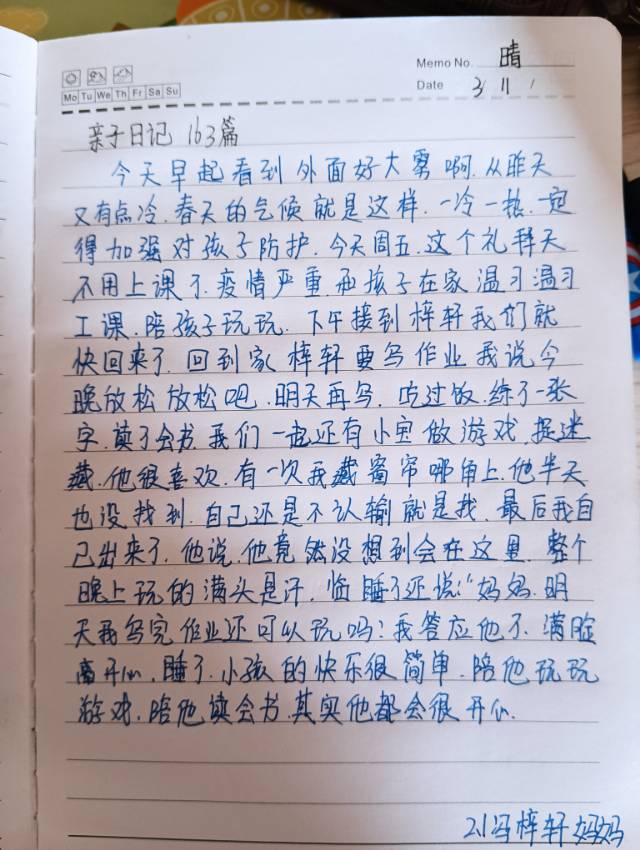 Memo No. 晴
Mo Tu We Th Fr Sa Su
Date 3/11
亲子日记 163篇
今天早起看到外面好大雾啊.从昨天
又有点冷.春天的气候就是这样.一冷一热.一定
得加强对孩子防护.今天周五.这个礼拜天
不用上课了.疫情严重.和孩子在家温习温习
工课.陪孩子玩玩.下午接到梓轩我们就
快回来了.回到家梓轩要写作业我说今
晚放松放松吧.明天再写.吃过饭.练了一张
字.读了会书.我们一起还有小宝做游戏.捉迷
藏.他很喜欢.有一次我藏窗帘哪角上.他半天
也没找到.自己还是不认输就是找.最后我自
己出来了.他说.他竟然没想到会在这里.整个
晚上玩的满头是汗.临睡了还说:“妈妈.明
天我写完作业还可以玩吗?我答应他了.满脸
高开心.睡了.小孩的快乐很简单.陪他玩玩
游戏.陪他读会书.其实他都会很开心.
2.1冯梓轩妈妈